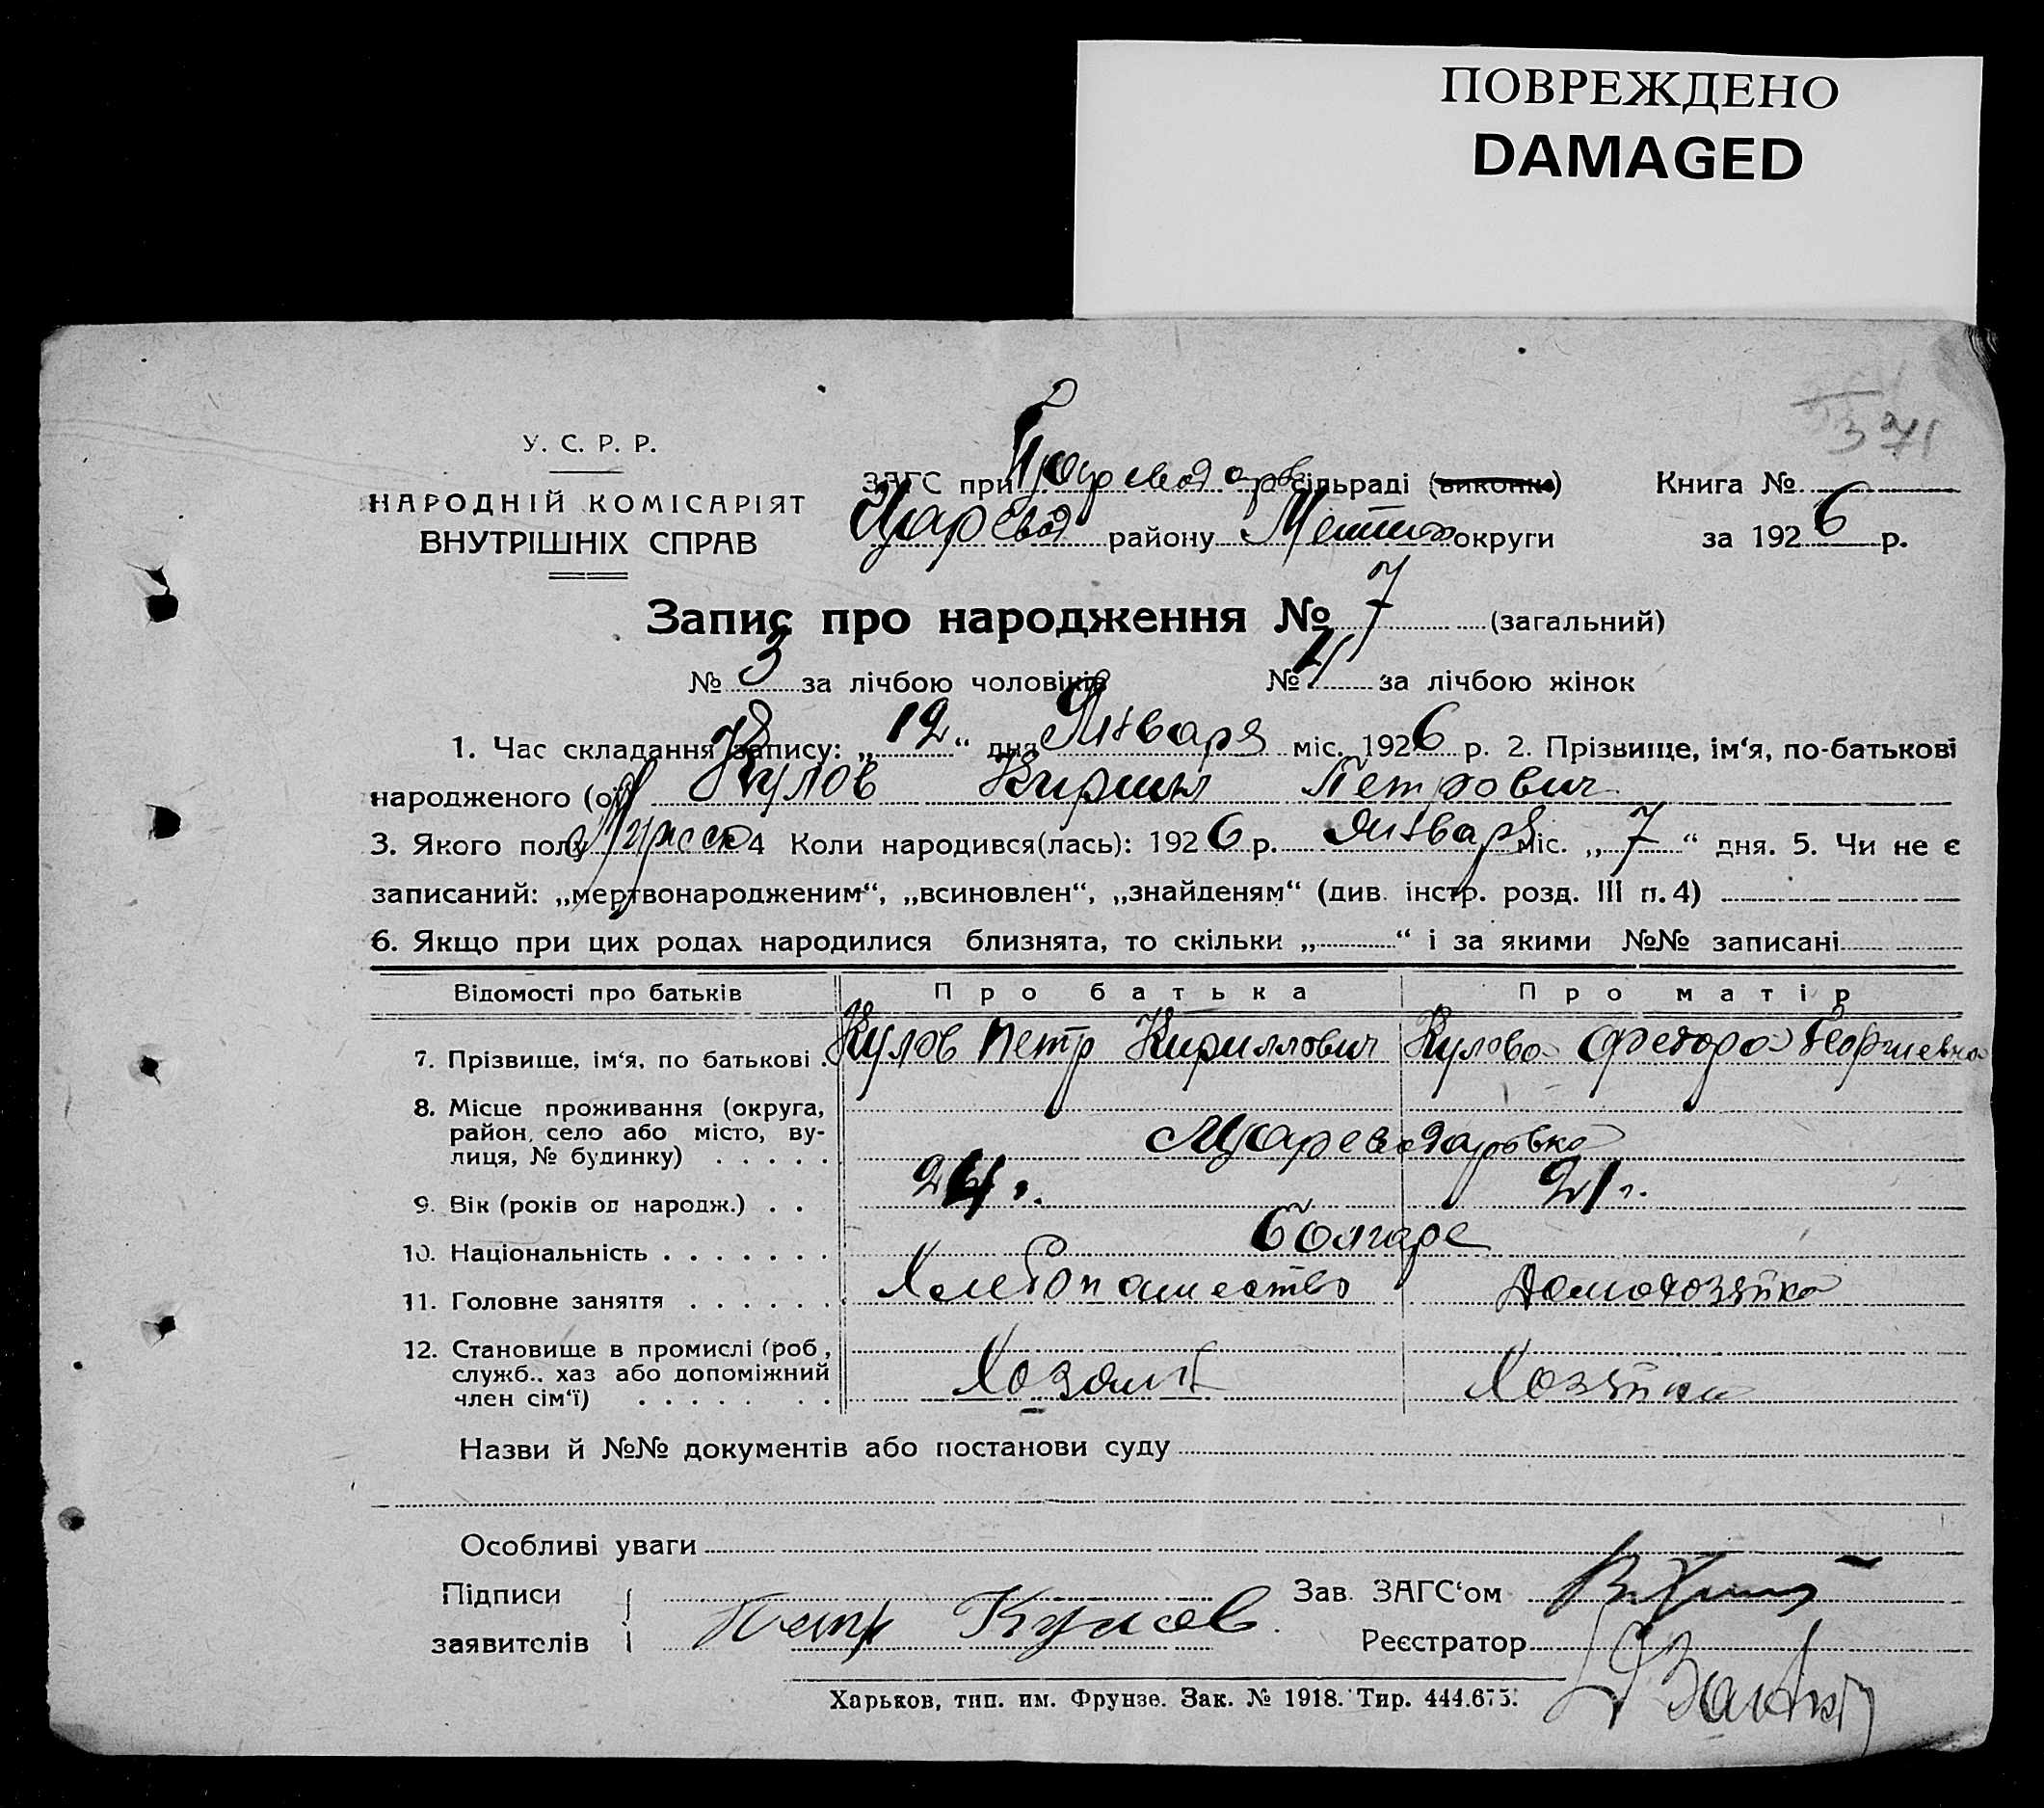 ПОВРЕЖДЕНО
DAMAGED
371
У. С. Р. Р.
НАРОДНІЙ КОМІСАРІЯТ
ВНУТРІШНІХ СПРАВ
ЗАГС при Цареводаров сільраді (виконк)
Царевод району Мелитоп округи
Книга №
за 1926 р.
Запис про народження № 7 (загальний)
№ 3 за лічбою чоловіків № за лічбою жінок
1. Час складання запису: „12“ дня Января міс. 1926 р. 2. Прізвище, ім‘я, по-батькові
народженого (ої) Кулов Кирилл Петрович
3. Якого полу Мужеск 4 Коли народився(лась): 1926 р. Января міс. „7“ дня. 5. Чи не є
записаний: „мертвонародженим“, „всиновлен“, „знайденям“ (див. інстр. розд. III п. 4)
6. Якщо при цих родах народилися близнята, то скільки „ “ і за якими №№ записані
Відомості про батьків Про батька Про матір
7. Прізвище, ім‘я, по батькові . Кулов Петр Кириллович Кулова Федора Георгиевна
8. Місце проживання (округа,
район, село або місто, ву-
лиця, № будинку) . . . . . Цареводаровка
9. Вік (років од народж.) . . 24 г. 21 г.
10. Національність . . . . . . . болгаре
11. Головне заняття . . . . . . Хлебопашество Домохозяйка
12. Становище в промислі (роб,
служб., хаз або допоміжний
член сім‘ї) . . . . . . . Хозяин Хозяйка
Назви й №№ документів або постанови суду
Особливі уваги
Підписи
заявителів Петр Кулов
Зав. ЗАГС‘ом
Реєстратор
Харьков, тип. им. Фрунзе. Зак. № 1918. Тир. 444.675.